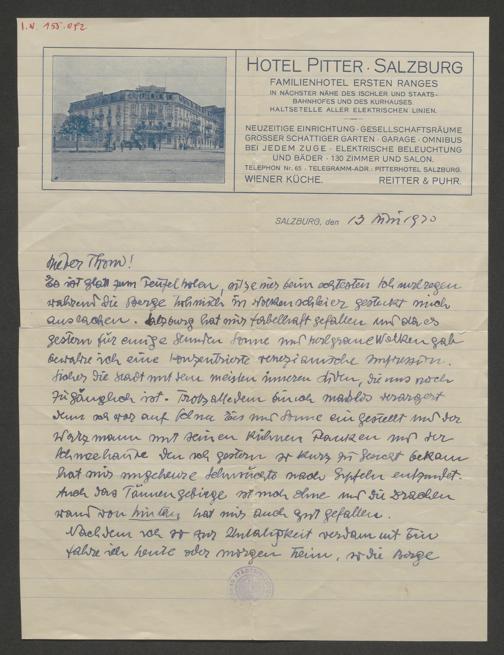 I.N. 155.092
HOTEL PITTER · SALZBURG
FAMILIENHOTEL ERSTEN RANGES
IN NÄCHSTER NÄHE DES ISCHLER UND STAATS-
BAHNHOFES UND DES KURHAUSES
HALTSETELLE ALLER ELEKTRISCHEN LINIEN.
NEUZEITIGE EINRICHTUNG · GESELLSCHAFTSRÄUME
GROSSER SCHATTIGER GARTEN · GARAGE · OMNIBUS
BEI JEDEM ZUGE · ELEKTRISCHE BELEUCHTUNG
UND BÄDER · 130 ZIMMER UND SALON.
TELEPHON Nr. 65 · TELEGRAMM-ADR.: PITTERHOTEL SALZBURG.
WIENER KÜCHE. REITTER & PUHR.
SALZBURG, den 13 1930
Lieber Thom!
Es ist glatt zum Teufel holen, sitze hier beim echtesten Schnürlregen
während die Berge höhnisch in Wolkenschleier gesteckt mich
auslachen. Salzburg hat mir fabelhaft gefallen und da es
gestern für einige Stunden Sonne und hochgraue Wolken gab
bewahre ich eine konzentrierte venezianische Impression.
Sicher die Stadt mit dem meisten inneren Süden, die uns noch
zugänglich ist. Trotzalledem bin ich maßlos verärgert
denn ich war auf Schnee Eis und Sonne eingestellt und der
Watzmann mit seinen kühnen Flanken und der
Schneehaube den ich gestern so kurz zu Gesicht bekam
hat mir ungeheure Sehnsüchte nach Gipfeln entzündet.
Auch das Tännengebirge ist nicht ohne und die Drachen
wand von hat mir auch gut gefallen.
Nachdem ich so zur Untätigkeit verdammt bin
fahre ich heute oder morgen heim, wo die Berge